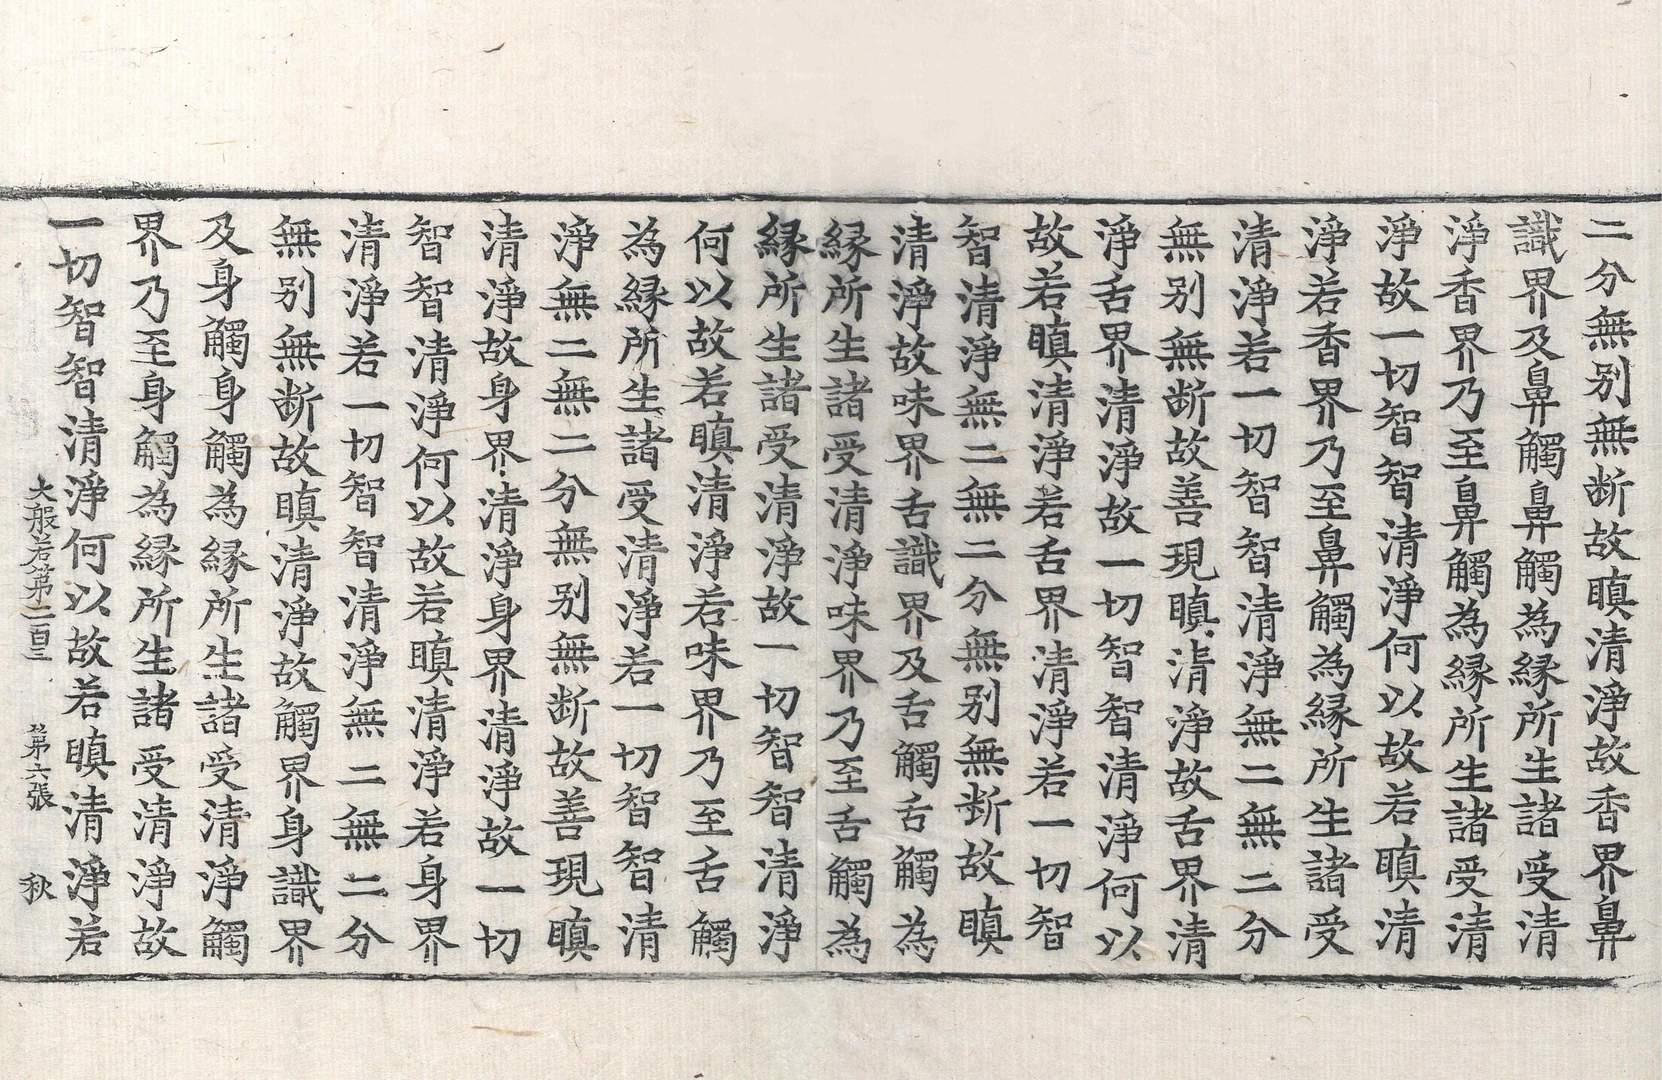 二分無别無断故瞋清淨故香界鼻
識界及鼻觸鼻觸為縁所生諸受清
淨香界乃至鼻觸為縁所生諸受清
淨故一切智智清淨何以故若瞋清
淨若香界乃至鼻觸為縁所生諸受
清淨若一切智智清淨無二無二分
無别無断故善現瞋清淨故舌界清
淨舌界清淨故一切智智清淨何以
故若瞋清淨若舌界清淨若一切智
智清淨無二無二分無别無断故瞋
清淨故味界舌識界及舌觸舌觸為
縁所生諸受清淨味界乃至舌觸為
縁所生諸受清淨故一切智智清淨
何以故若瞋清淨若味界乃至舌觸
為縁所生諸受清淨若一切智智清
淨無二無二分無别無断故善現瞋
清淨故身界清淨身界清淨故一切
智智清淨何以故若瞋清淨若身界
清淨若一切智智清淨無二無二分
無别無断故瞋清淨故觸界身識界
及身觸身觸為縁所生諸受清淨觸
界乃至身觸為縁所生諸受清淨故
一切智智清淨何以故若瞋清淨若
大般若第二百三 第六張 秋